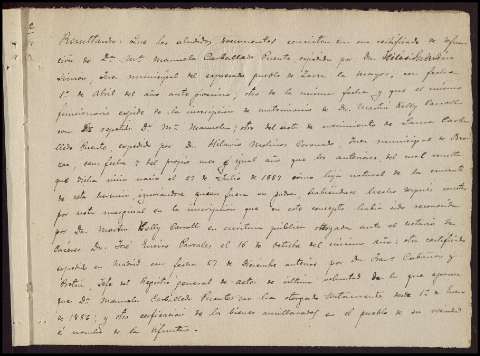 Resultando: Que los aludidos documentos consisten en un certificado de defun-
ción de Dª Mª Manuela Carballedo Puente expedida por Dn
Juez municipal del expresado pueblo de la mayor, con fecha
1º de Abril del año anterior; otro de la misma fecha y que el mismo
funcionario expide de la inscripción de matrimonio de Dn Martin Kelly
con la repetida Dª Mª Manuela; otro del acta de nacimiento de Carba-
lledo Puente, expedido por Dn Hilario Molinos Coronado, Juez municipal de
con fecha 7 del propio mes y igual año que los anteriores, del cual resulta
que dicha niña nació el 27 de Julio de 1887 como hija natural de la
de esta ignorándose quien fuera su padre, habiéndose hecho después constar
por nota marginal en la inscripción que en este concepto había sido reconocida
por Dn Martin Kelly en escritura pública otorgada ante el notario de
Cáceres Dn José el 16 de Octubre del mismo año; otro certificado
expedido en Madrid con fecha 27 de Diciembre anterior por Dn
Jefe del Registro general de actos de última voluntad de lo que aparece
que Dª Manuela Carballedo Puente no ha otorgado testamento desde 1º de Enero
de 1886; y otra certificación de los bienes amillarados en el pueblo de su vecindad
á nombre de la difunta.-